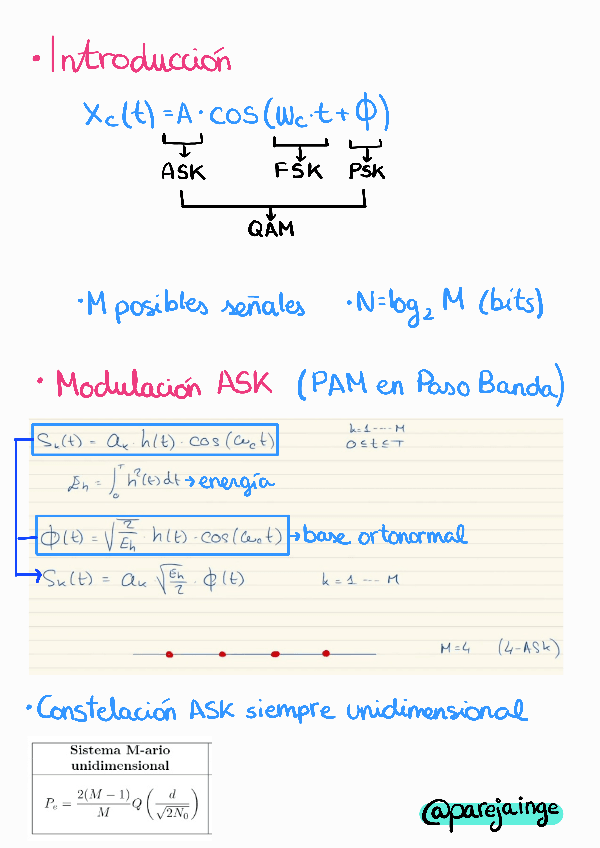 · Introducción
Xc(t) = A · cos(Wc·t + ϕ)
ASK FSK PSK
QAM
· M posibles señales · N = log₂ M (bits)
· Modulación ASK (PAM en Paso Banda)
Sₖ(t) = aₖ · h(t) · cos(ωc t) k = 1 ---- M
0 ≤ t ≤ T
Eh = ∫₀ᵀ h²(t) dt → energía
ϕ(t) = √(2/Eh) · h(t) · cos(ωc t) → base ortonormal
Sₖ(t) = aₖ √(Eh/2) · ϕ(t) k = 1 --- M
M = 4 (4-ASK)
· Constelación ASK siempre unidimensional
Sistema M-ario
unidimensional
Pₑ = 2(M − 1)/M Q(d/√(2N₀))
@parejainge